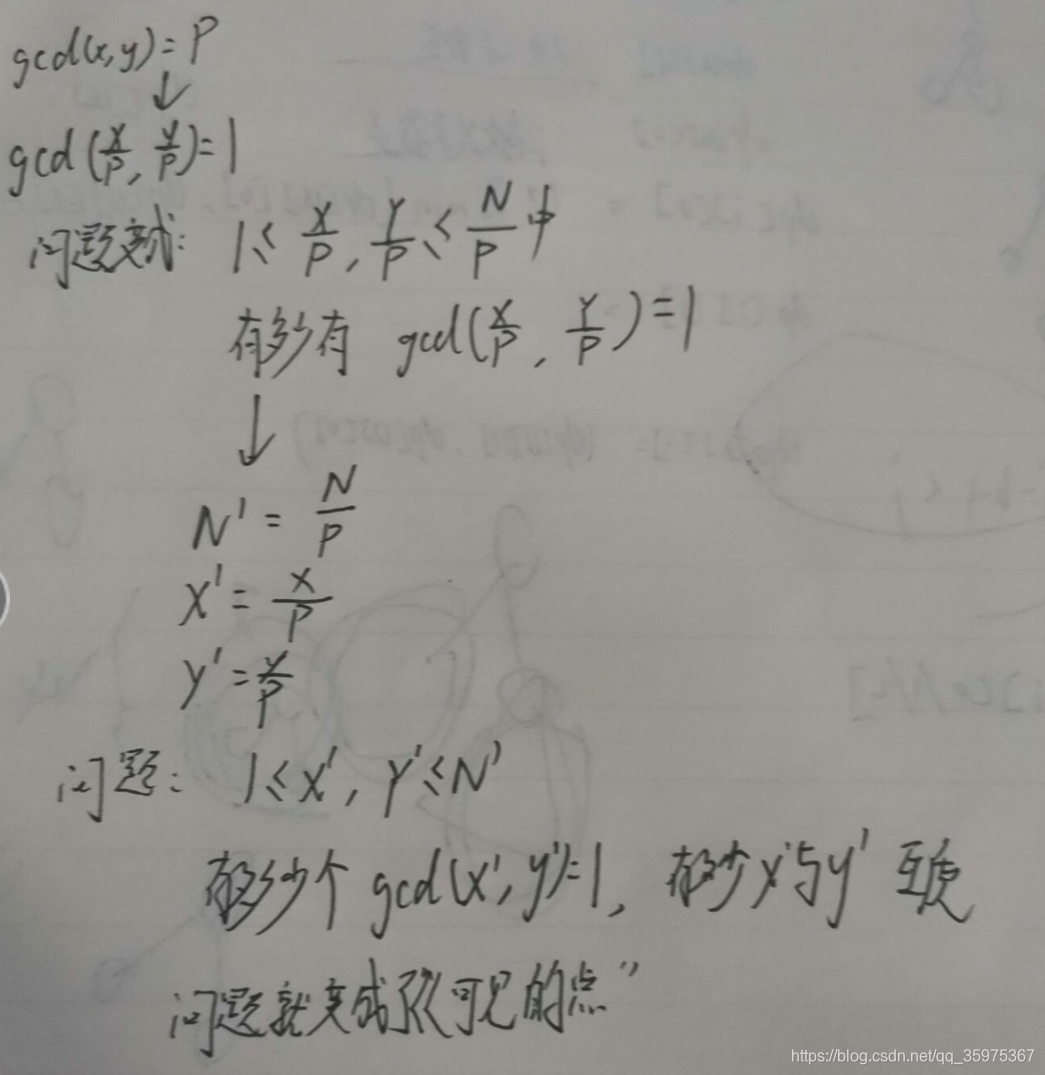 gcd(x,y)=P
↓
gcd(x/P, y/P)=1
问题变成: 1≤ x/P, y/P ≤ N/P 中
有多少有 gcd(x/P, y/P)=1
↓
N' = N/P
x' = x/P
y' = y/P
问题: 1≤x', y'≤N'
有多少个 gcd(x',y')=1, 有多少x'与y' 互质
问题就变成了"可见的点"
https://blog.csdn.net/qq_35975367